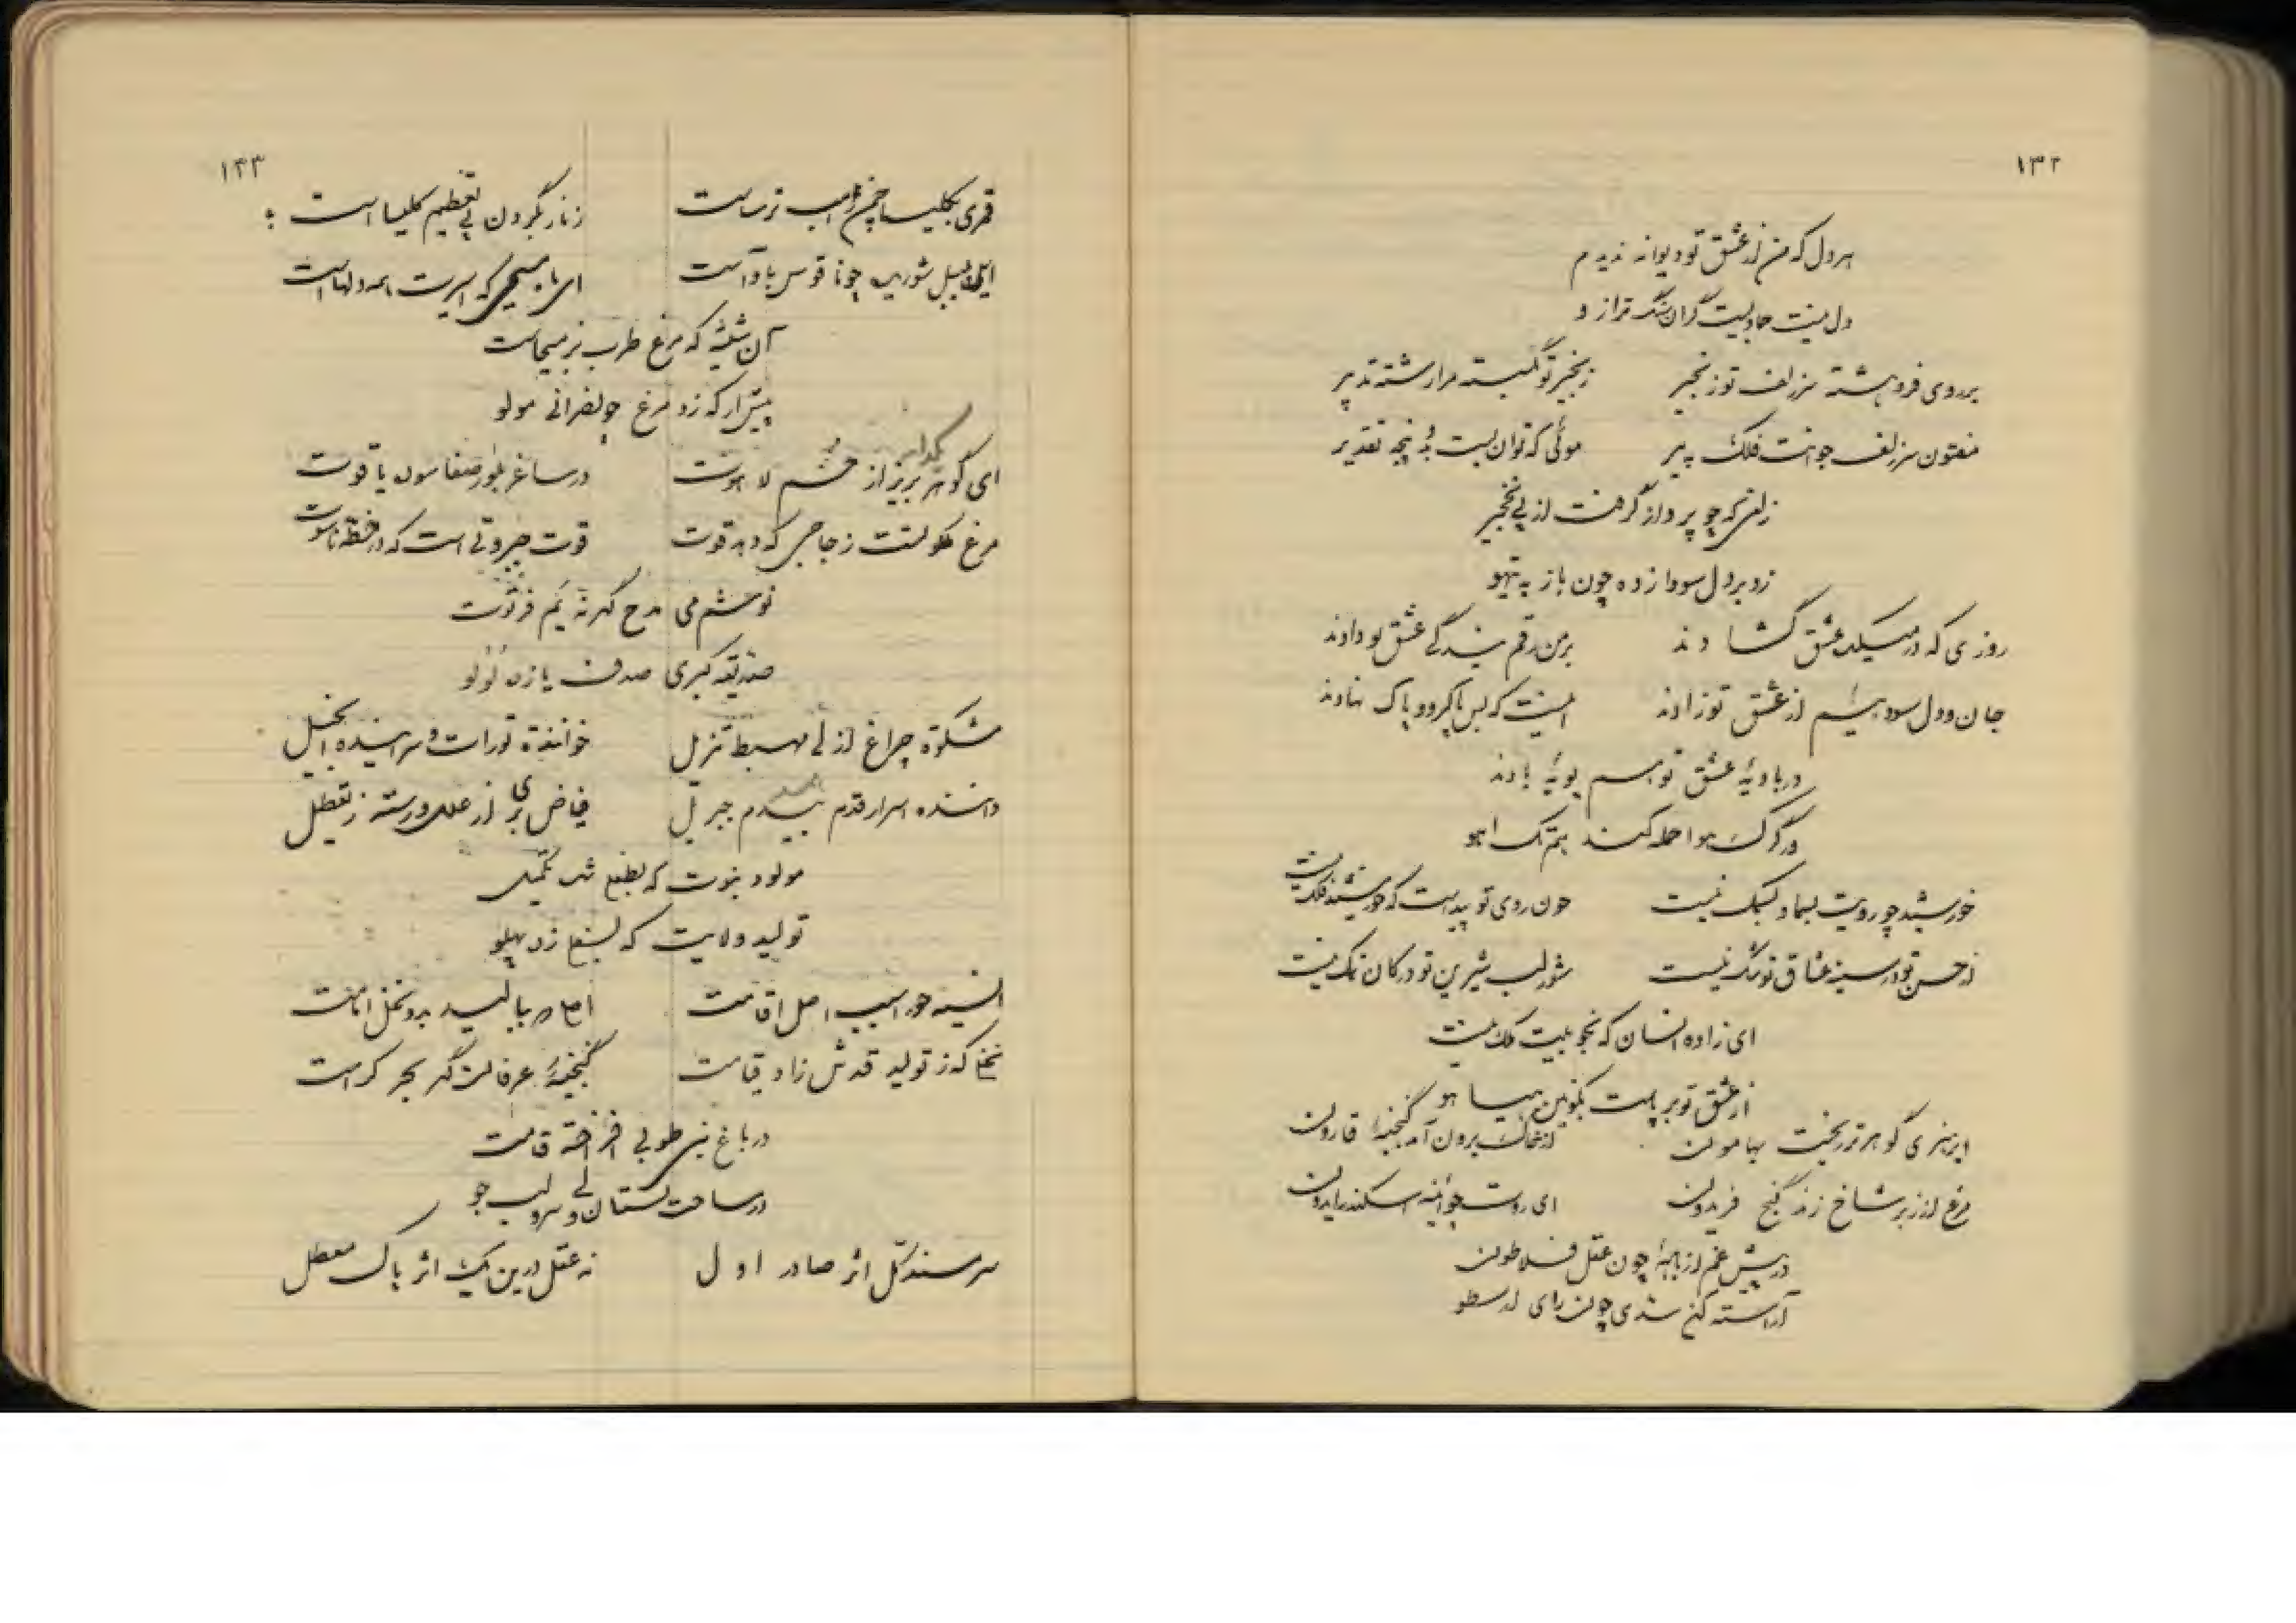 ۱۳۲
هر دل که من از عشق تو دیوانه ندیدم
دل نیست جمادیست گران سنگ ترازو
بر روی فروهشته سر زلف تو زنجیر زنجیر تو بگسسته مرا رشته تدبیر
مفتون سر زلف جوانت فلک پیر موئی که توان بست بدو پنجه تقدیر
زلفی که چو پرواز گرفت از پی نخجیر
زد بر دل سودا زده چون باز به تیهو
روزی که در میکده عشق گشادند بر من رقم بندگی عشق تو دادند
جان و دل سودا از عشق تو زادند که بس پاکرو و پاک نهادند
در بادیه عشق تو هم پویه بادند
ور گرگ هوا حمله کند هم تک آهو
خورشید چو رویت بسما و بسمک نیست چون روی تو پیداست که خورشید فلک نیست
از حسن تو در سینه عشاق تو شک نیست شور لب شیرین تو در کان نمک نیست
ای زاده انسان که نجو بیت ملک نیست
از عشق تو بر پاست بکونین هیاهو
ابر گوهر تر ریخت بهامون از خاک برون آمد گنجینه قارون
مرغ از زبر شاخ زند گنج فریدون ای روت چو آئینه اسکندر
در پیش غم از باده چون عقل فلاطون
آراسته کن چون رای ارسطو
۱۳۳
قمری بکلیسا چمن راهب ترساست زنار بگردن پی تعظیم کلیسا است
بلبل شوریده چو ناقوس باواست ای ماه مسیحی که اسیرت همه دلهاست
آن شیشه که مرغ طرب بزم مسیحاست
پیش آر که زد مرغ چو نصرانی مولو
ای گوهر لبریز از لاهوت در ساغر بلور صفا سوده یاقوت
مرغ ملکوتست زجاجی که دهد قوت قوت جبروتی است که در خطه ناسوت
نوشم می مدح گهر نه یم فرتوت
صدیقه کبری صدف یازده لولو
مشکوة چراغ ازلی مهبط تنزیل خواننده تورات و سراینده انجیل
داننده اسرار قدم جبریل فیاض بری از علل و رسته ز تعطیل
مولود نبوت که شد تکمیل
تولید ولایت که زد پهلو
انسیه حورا سبب اصل اقامت اصلی که ببالید بدو نخل امامت
نخلی که ز تولید قدش زاد قیامت گنجینه عرفان گهر بحر کرامت
در باغ نبی طوبی افراخته قامت
در ساحت بستان ولی سرو لب جو
سر سند کل اثر صادر اول نه عقل درین یک اثر پاک معطل